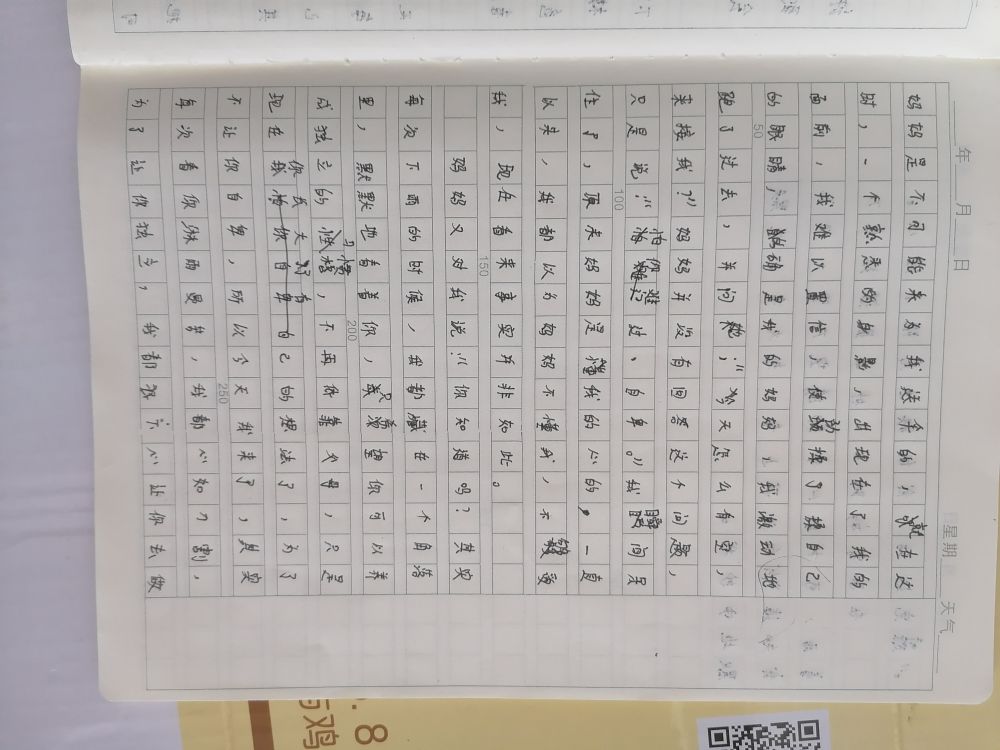 年 月 日 星期 天气
妈妈是不可能来为我送伞的，就在这
时，一个熟悉的身影，出现在了我的
面前，我难以置信，使劲揉了揉自己
的眼睛，的确是我的妈妈，我激动地
50
跑了过去，并问她：“今天怎么有空，
来接我？”妈妈并没有回答这个问题，
只是说：“怕你难过、自卑。”我瞬间呆
100
住了，原来妈妈是懂我的心的，一直
以来，我都以为妈妈不懂我，不够爱
我，现在看来事实并非如此。
150
妈妈又对我说：“你知道吗？其实
每次下雨的时候，我都藏在一个角落
里，默默地看着你，我只望你可以养
200
成独立的习惯，不再依靠父母，只是
现在你长大了，有自己的想法了，为了
不让你自卑，所以今天我来了，其实
250
每次看你淋雨，我都心如刀割，
为了让你独立，我都狠下心让你去做
鸡
.8